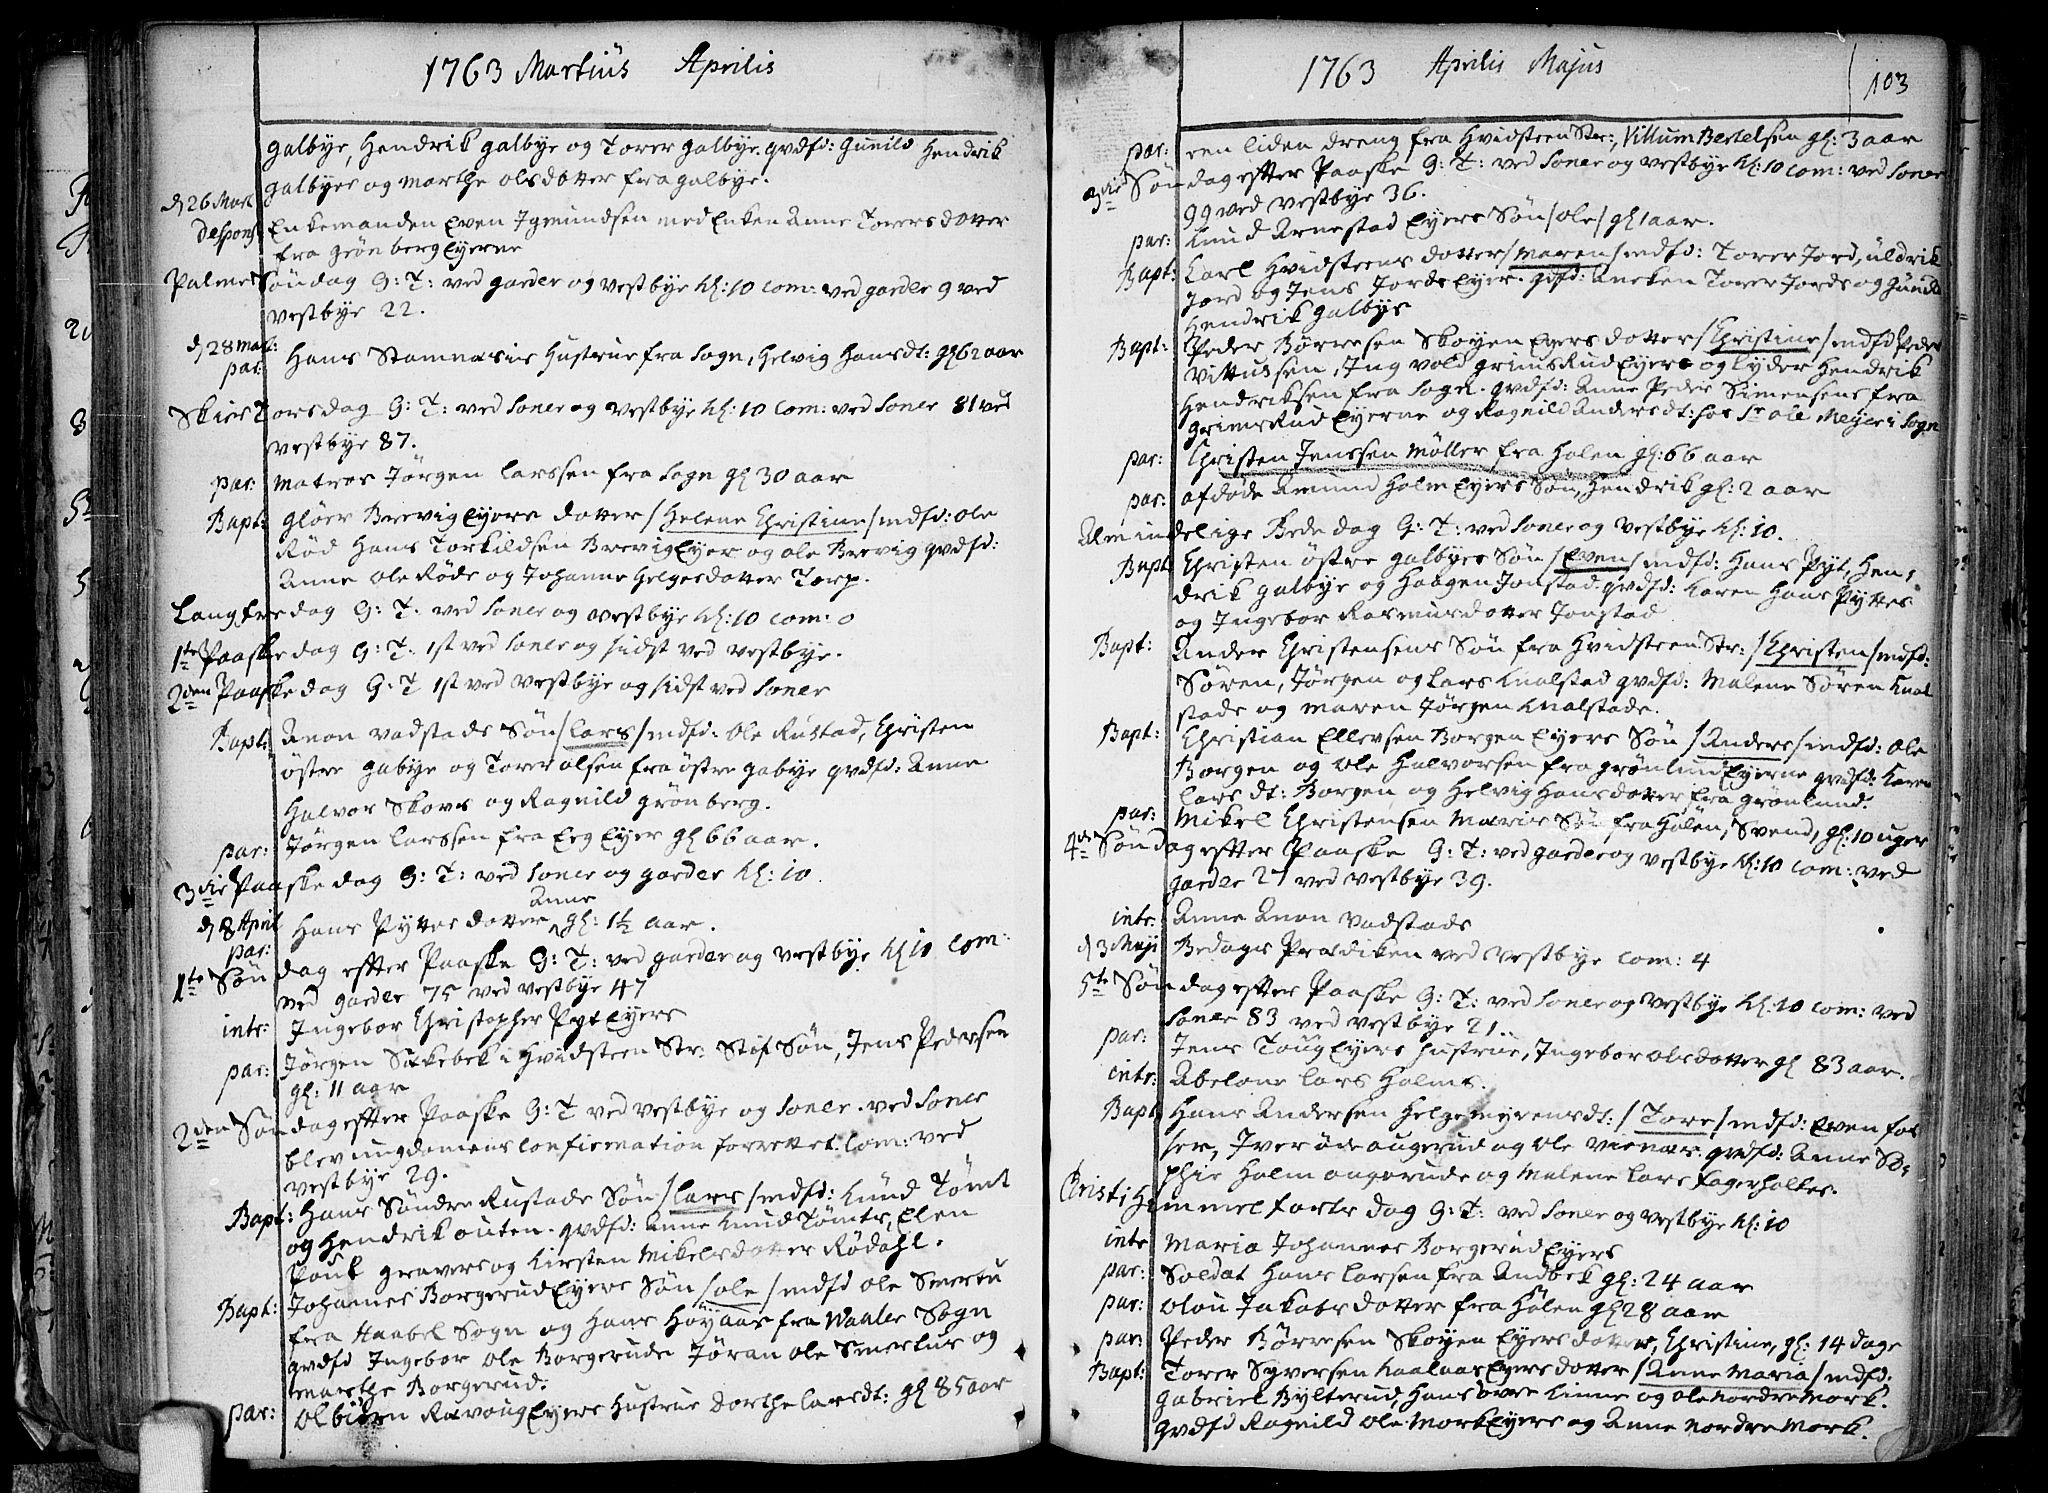 1763 Martius Aprilis
Galbÿe, Hendrik Galbÿe og Torer Galbÿe. qvdfd: Gunild Hendrik
Galbÿes og Marthe Olsdotter fra Galbÿe.
d 26 Mart
Despons: Enkemanden Even Igmundsen med Enken Anne Torersdotter
fra Grönberg Eÿerne
Palme Söndag G: T: ved Garder og Vestbÿe Kl: 10 Com: ved Garder 9 ved
Vestbÿe 22.
d 28 Mart:
par: Hans Hustrue fra Sogn, Helvig Hansdt: gl 62 aar
Skier Torsdag G: T: ved Soner og Vestbÿe Kl: 10 Com: ved Soner 81 ved
Vestbÿe 87.
par: Matros Jörgen Larssen fra Sogn gl 30 aar
Bapt: Glöer Brevig Eÿers dotter / Helene Christine / mdfd: Ole
Röd Hans Torkildsen Brevig Eÿer og Ole Brevig qvdfd:
Anne Ole Röds og Johanne Helgesdotter Torp.
Langfredag G: T: ved Soner og Vestbÿe Kl: 10 Com: 0
1ste Paaskedag G: T: 1st ved Soner og sidst ved Vestbÿe.
2den Paaskedag G: T 1st ved Vestbÿe og sidst ved Soner
Bapt: Anon Vadstads Sön / Lars / mdfd: Ole Rustad, Christen
östre Gabÿe og Torer Olsen fra östre Gabÿe qvdfd: Anne
Halvor Skovs og Ragnild Grönberg.
par: Jörgen Larssen fra Eeg Eÿer gl 66 aar.
3die Paaskedag G: T: ved Soner og Garder Kl: 10
Anne
d 8 April
par: Hans Pÿttes dotter, gl: 1½ aar.
1ste Söndag efter Paaske G: T: ved Garder og Vestbÿe Kl 10 Com:
ved Garder 75 ved Vestbÿe 47
intr: Ingebor Christopher Pÿt Eÿers
par: Jörgen Sukebek i Hvidsteen Str: Stif Sön, Jens Pedersen
gl: 11 aar
2den Söndag efter Paaske G: T ved Vestbÿe og Soner. ved Soner
blev ungdomens Confirmation forrettet. Com: ved
Vestbÿe 29.
Bapt: Hans Söndre Rustads Sön / Lars / mdfd: Knud Tömt
og Hendrik Outen. qvdfd: Anne Knud Tömts, Elen
Poul Gravers og Kirsten Mikelsdotter Rödahl.
Bapt: Johannes Borgerud Eÿers Sön / Ole / mdfd Ole Smertu
fra Haabel Sogn og Hans Höÿaas fra Waaler Sogn
qvdfd Ingebor Ole Borgeruds Jöran Ole Smertus og
Marthe Borgerud.
par: Olbiörn Ravoug Eÿers Hustrue Dorthe Larsdt: gl 85 aar
1763 Aprilis Majus 103
par: een liden dreng fra Hvidsteen Str:, Villum Bertelsen gl: 3 aar
3die Söndag efter Paaske G: T: ved Soner og Vestbÿe Kl: 10 Com: ved Soner
99 ved Vestbÿe 36.
par: Knud Arnestad Eÿers Sön / Ole / gl 1 aar.
Bapt: Carl Hvidsteens dotter / Maren / mdfd: Torer Jord, Uldrik
Jord og Jens Jords Eÿer. qvdfd: Aneken Torer Jords og Gunild
Hendrik Galbÿs
Bapt: Peder Börresen Skoÿen Eÿers dotter / Christine / mdfd Peder
Vittussen, Ingvold Grimsrud Eÿers og Lÿder Hendrik
Hendriksen fra Sogn. qvdfd: Anne Peder Simensens fra
Grimsrud Eÿerne og Ragnild Andersdt: hos Sr Ole Meÿer i Sogn
par: Christen Jenssen Möller fra Holen gl: 66 aar
par: afdöde Amund Holm Eÿers Sön, Hendrik gl: 2 aar
Almindelige Bededag G: T: ved Soner og Vestbÿe Kl: 10.
Bapt Christen östre Galbÿes Sön / Even / mdfd: Hans Pÿt, Hen-
drik Galbÿe og Haagen Jonstad qvdfd: Karen Hans Pÿttes
og Ingebor Rasmusdotter Jonstad
Bapt: Ander Christensens Sön fra Hvidsteen Str: / Christen / mdfd:
Sören, Jörgen og Lars Knalstad qvdfd: Malene Sören Knal
stads og Maren Jörgen Knalstads.
Bapt: Christian Ellevsen Borgen Eÿers Sön / Anders / mdfd: Ole
Borgen og Ole Halvorsen fra Grönlund Eÿerne qvdfd: Karen
Larsdt: Borgen og Helvig Hansdotter fra Grönlund.
par: Mikel Christensen Maries Sön fra Hölen, Svend, gl: 10 uger
4de Söndag efter Paaske G: T: ved Garder og Vestbÿe Kl: 10 Com: ved
Garder 27 ved Vestbÿe 39.
intr: Anne Anon Vadstads
d 3 Maji Bedags Prædiken ved Vestbÿe Com: 4
5te Söndag efter Paaske G: T: ved Soner og Vestbÿe Kl: 10 Com: ved
Soner 83 ved Vestbÿe 21.
par: Jens Toug Eÿers Hustrue, Ingebor Olsdotter gl 83 aar.
intr: Abelone Lars Holms.
Bapt Hans Andersen Helgemÿrens dt: / Tore / mdfd: Even Fos
ser, Iver ödeaugerud og Ole Vienas qvdfd: Anne So-
phie Holm Ongeruds og Malene Lars Fagerholtes.
Cristi Himmelfarts dag G: T: ved Soner og Vestbÿe Kl: 10
intr Maria Johannes Borgerud Eÿers
par: Soldat Hans Larsen fra Andbek gl: 24 aar
par: Olou Jakobsdotter fra Hölen gl 28 aar
par: Peder Börresen Skoÿen Eÿers dotter, Christine, gl: 14 dage
Bapt: Torer Sÿversen Haalaas Eÿers dotter / Anne Maria / mdfd:
Gabriel Bÿlterud, Hans övre Linne og Ole Nordre Mork.
qvdfd Ragnild Ole Mork Eÿers og Anne Nordre Mork.